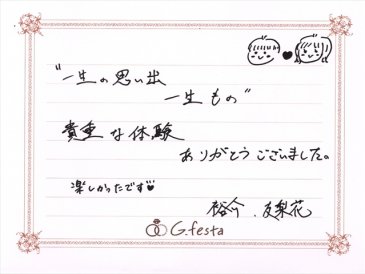 "一生の思い出
一生もの"
貴重な体験
ありがとうございました。
楽しかったです♥
裕介 . 友梨花
G.festa